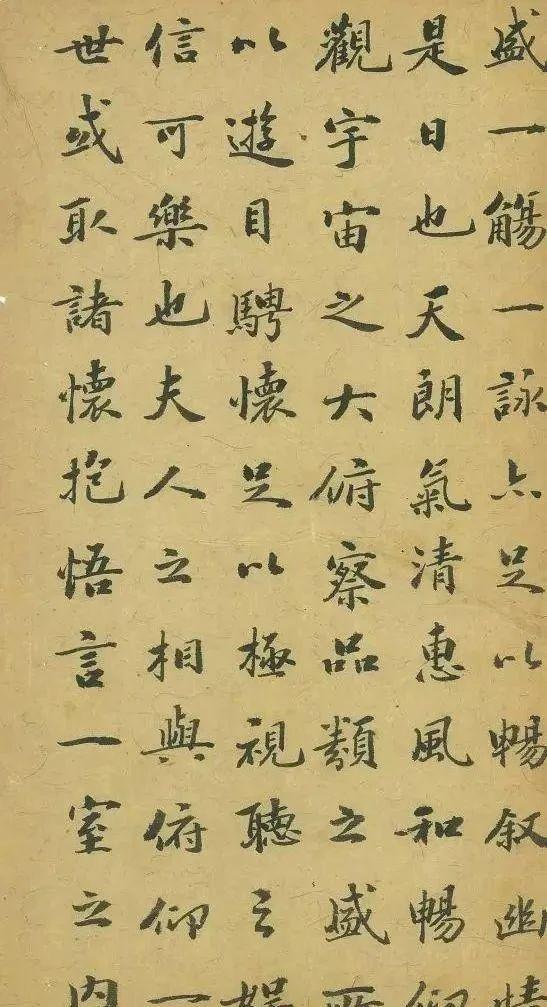 盛一觴一詠亦足以暢叙幽情
是日也天朗氣清惠風和暢仰
觀宇宙之大俯察品類之盛所
以遊目騁懷足以極視聽之娛
信可樂也夫人之相與俯仰一
世或取諸懷抱悟言一室之內